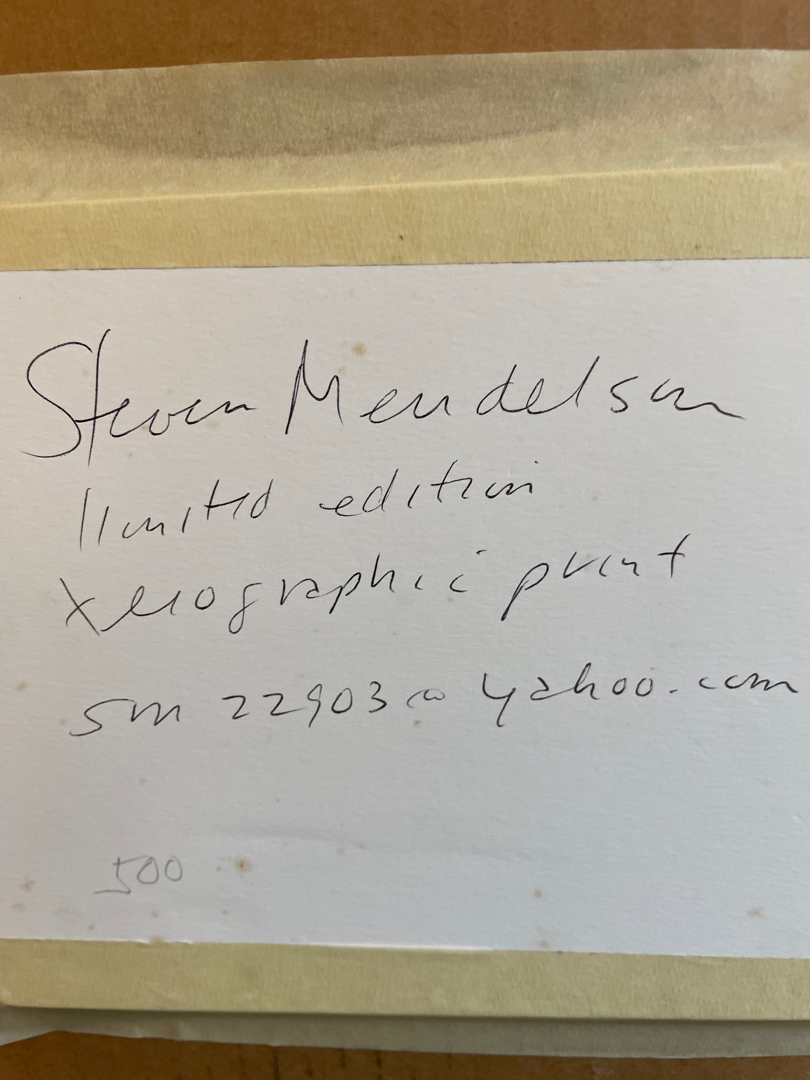 Steven Mendelson
limited edition
xerographic print
sm22903@yahoo.com
500